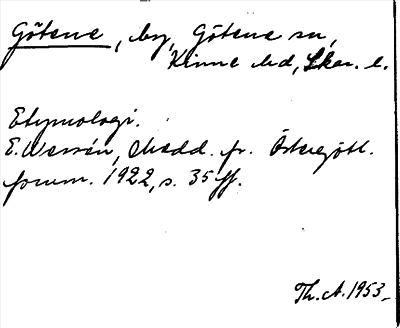 Götene, by, Götene sn,
Kinne hd, Skar. l.
Etymologi.
E. Wessén, Medd. fr. Östergötl.
fornm. 1922, s. 35 ff.
Th. A. 1953.